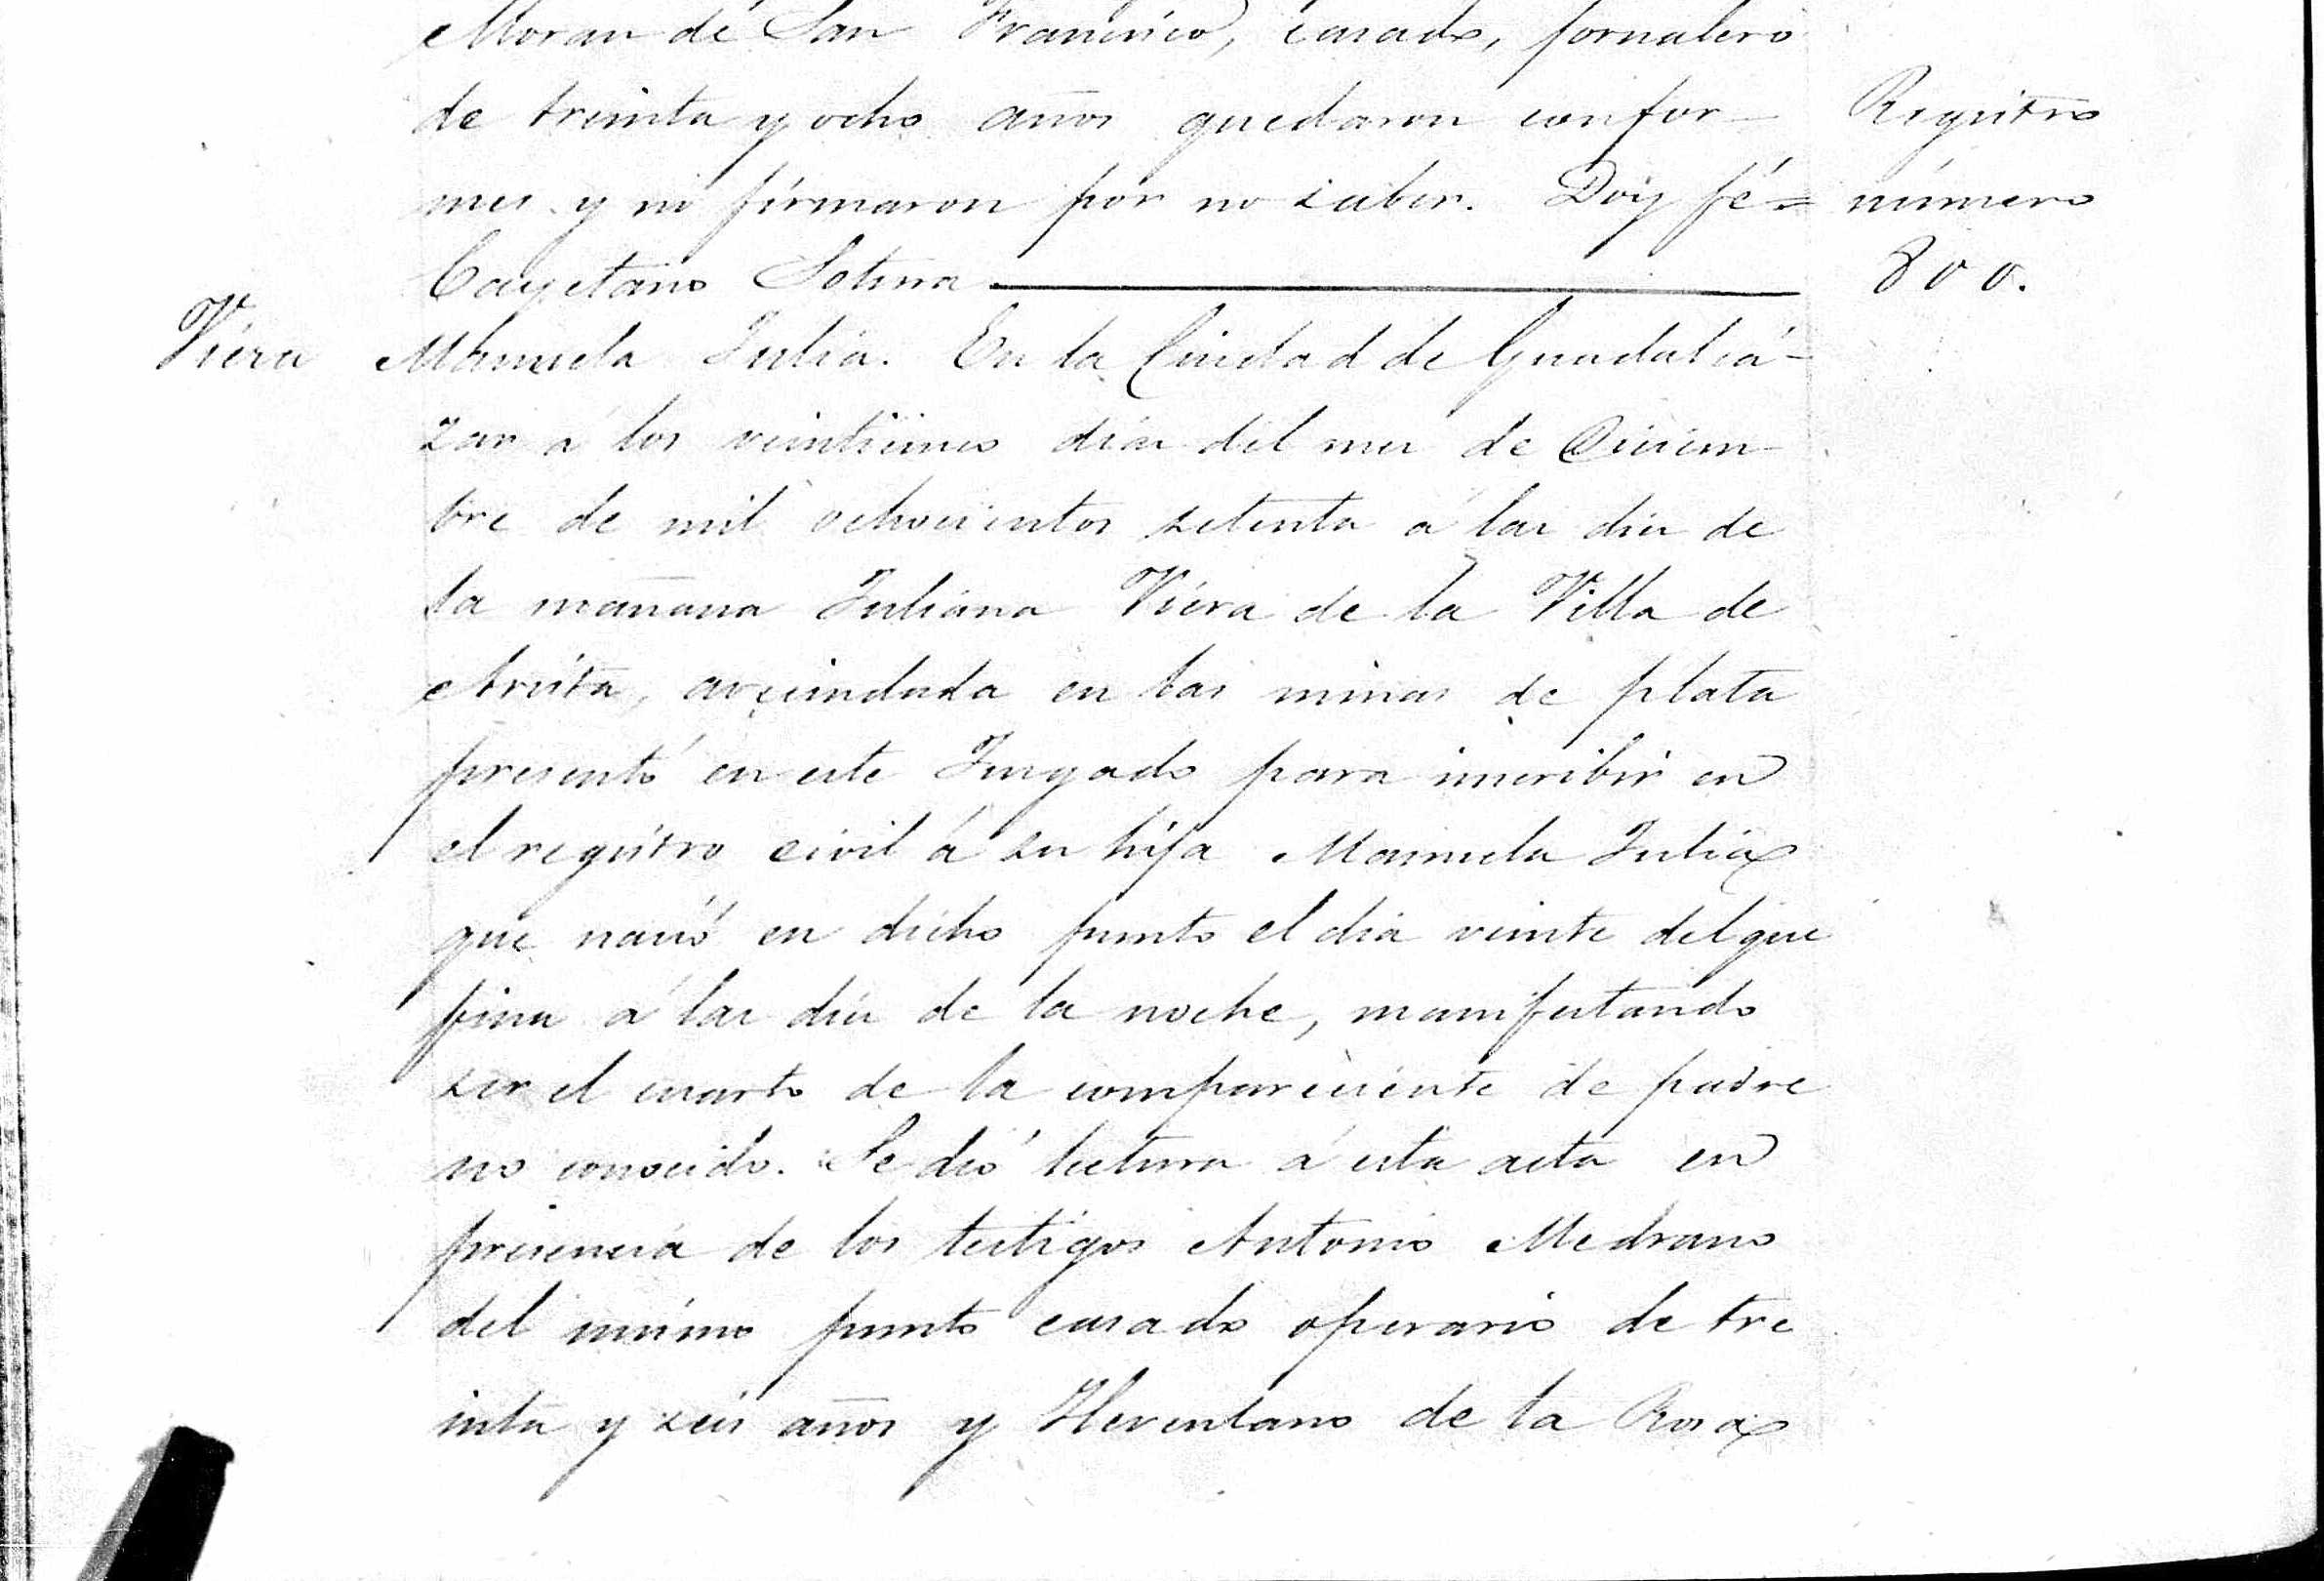 Moran de San Francisco, casado, jornalero
de treinta y ocho años quedaron confor-
mes y no firmaron por no saber. Doy fé =
Cayetano
Registro
número
800.
Viera
Manuela Julia. En la Ciudad de Guadalcá-
zar á los veinticinco dias del mes de Diciem-
bre de mil ochocientos setenta á las diez de
la mañana Juliana Viera de la Villa de
Arista, avecindada en las minas de plata
presentó en este Juzgado para inscribir en
el registro civil á su hija Manuela Julia
que nació en dicho punto el dia veinte del que
fina á las diez de la noche, manifestando
ser el cuarto de la compareciente de padre
no conocido. Se dió lectura á esta acta en
presencia de los testigos Antonio Medrano
del mismo punto casado operario de tre
inta y seis años y Herculano de la Rosa